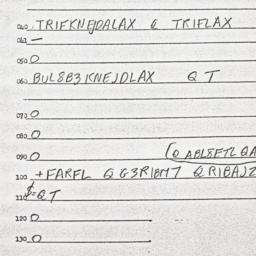 040 TRIFKNEJDALAX & TRIFLAX
041 —
050 O
060 BUL8B3KNEJDLAX QT
070 O
080 O
090 O (Q ABL8ETL QA
100 +FARFL QG3RIBMT QRIBAJZ
110 $=QT
120 O
130 O